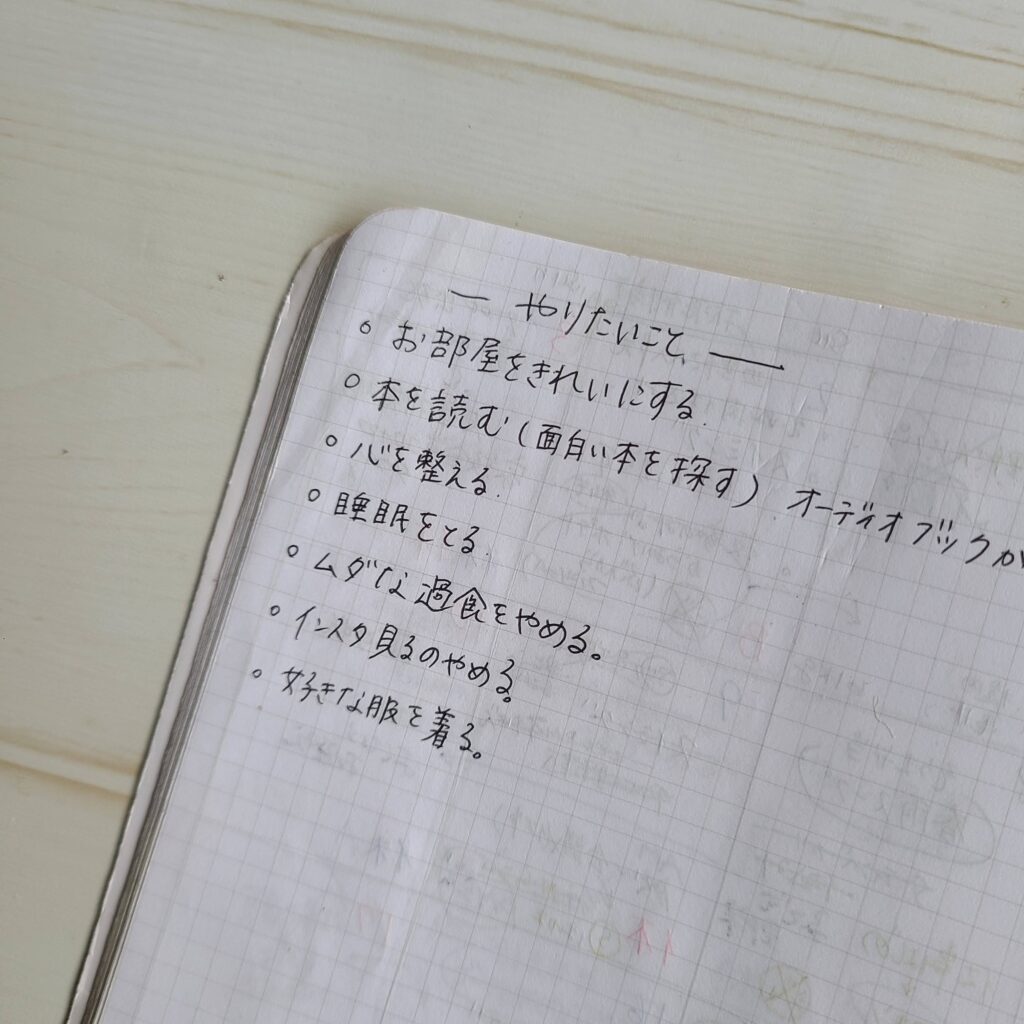 — やりたいこと —
○ お部屋をきれいにする.
○ 本を読む(面白い本を探す) オーディオブックか
○ 心を整える.
○ 睡眠をとる.
○ ムダな過食をやめる。
○ インスタ見るのやめる。
○ 好きな服を着る。